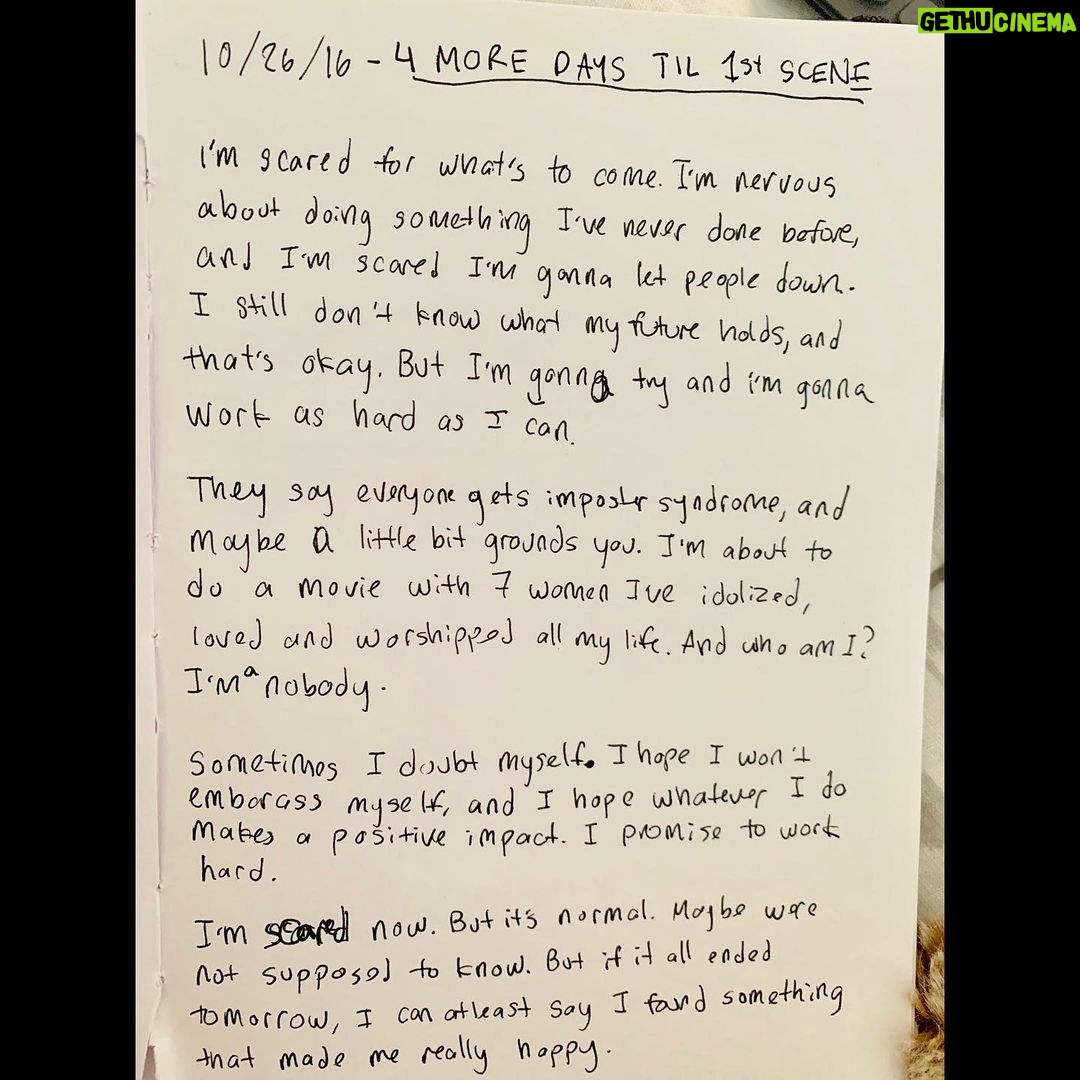 GETHUCINEMA
10/26/16 - 4 MORE DAYS TIL 1st SCENE
I'm scared for what's to come. I'm nervous
about doing something I've never done before,
and I'm scared I'm gonna let people down.
I still don't know what my future holds, and
that's okay. But I'm gonna try and i'm gonna
work as hard as I can.
They say everyone gets imposter syndrome, and
maybe a little bit grounds you. I'm about to
do a movie with 7 women Ive idolized,
loved and worshipped all my life. And who am I?
I'm a nobody.
Sometimes I doubt myself. I hope I won't
embarass myself, and I hope whatever I do
makes a positive impact. I promise to work
hard.
I'm scared now. But it's normal. Maybe were
not supposed to know. But if it all ended
tomorrow, I can atleast say I found something
that made me really happy.